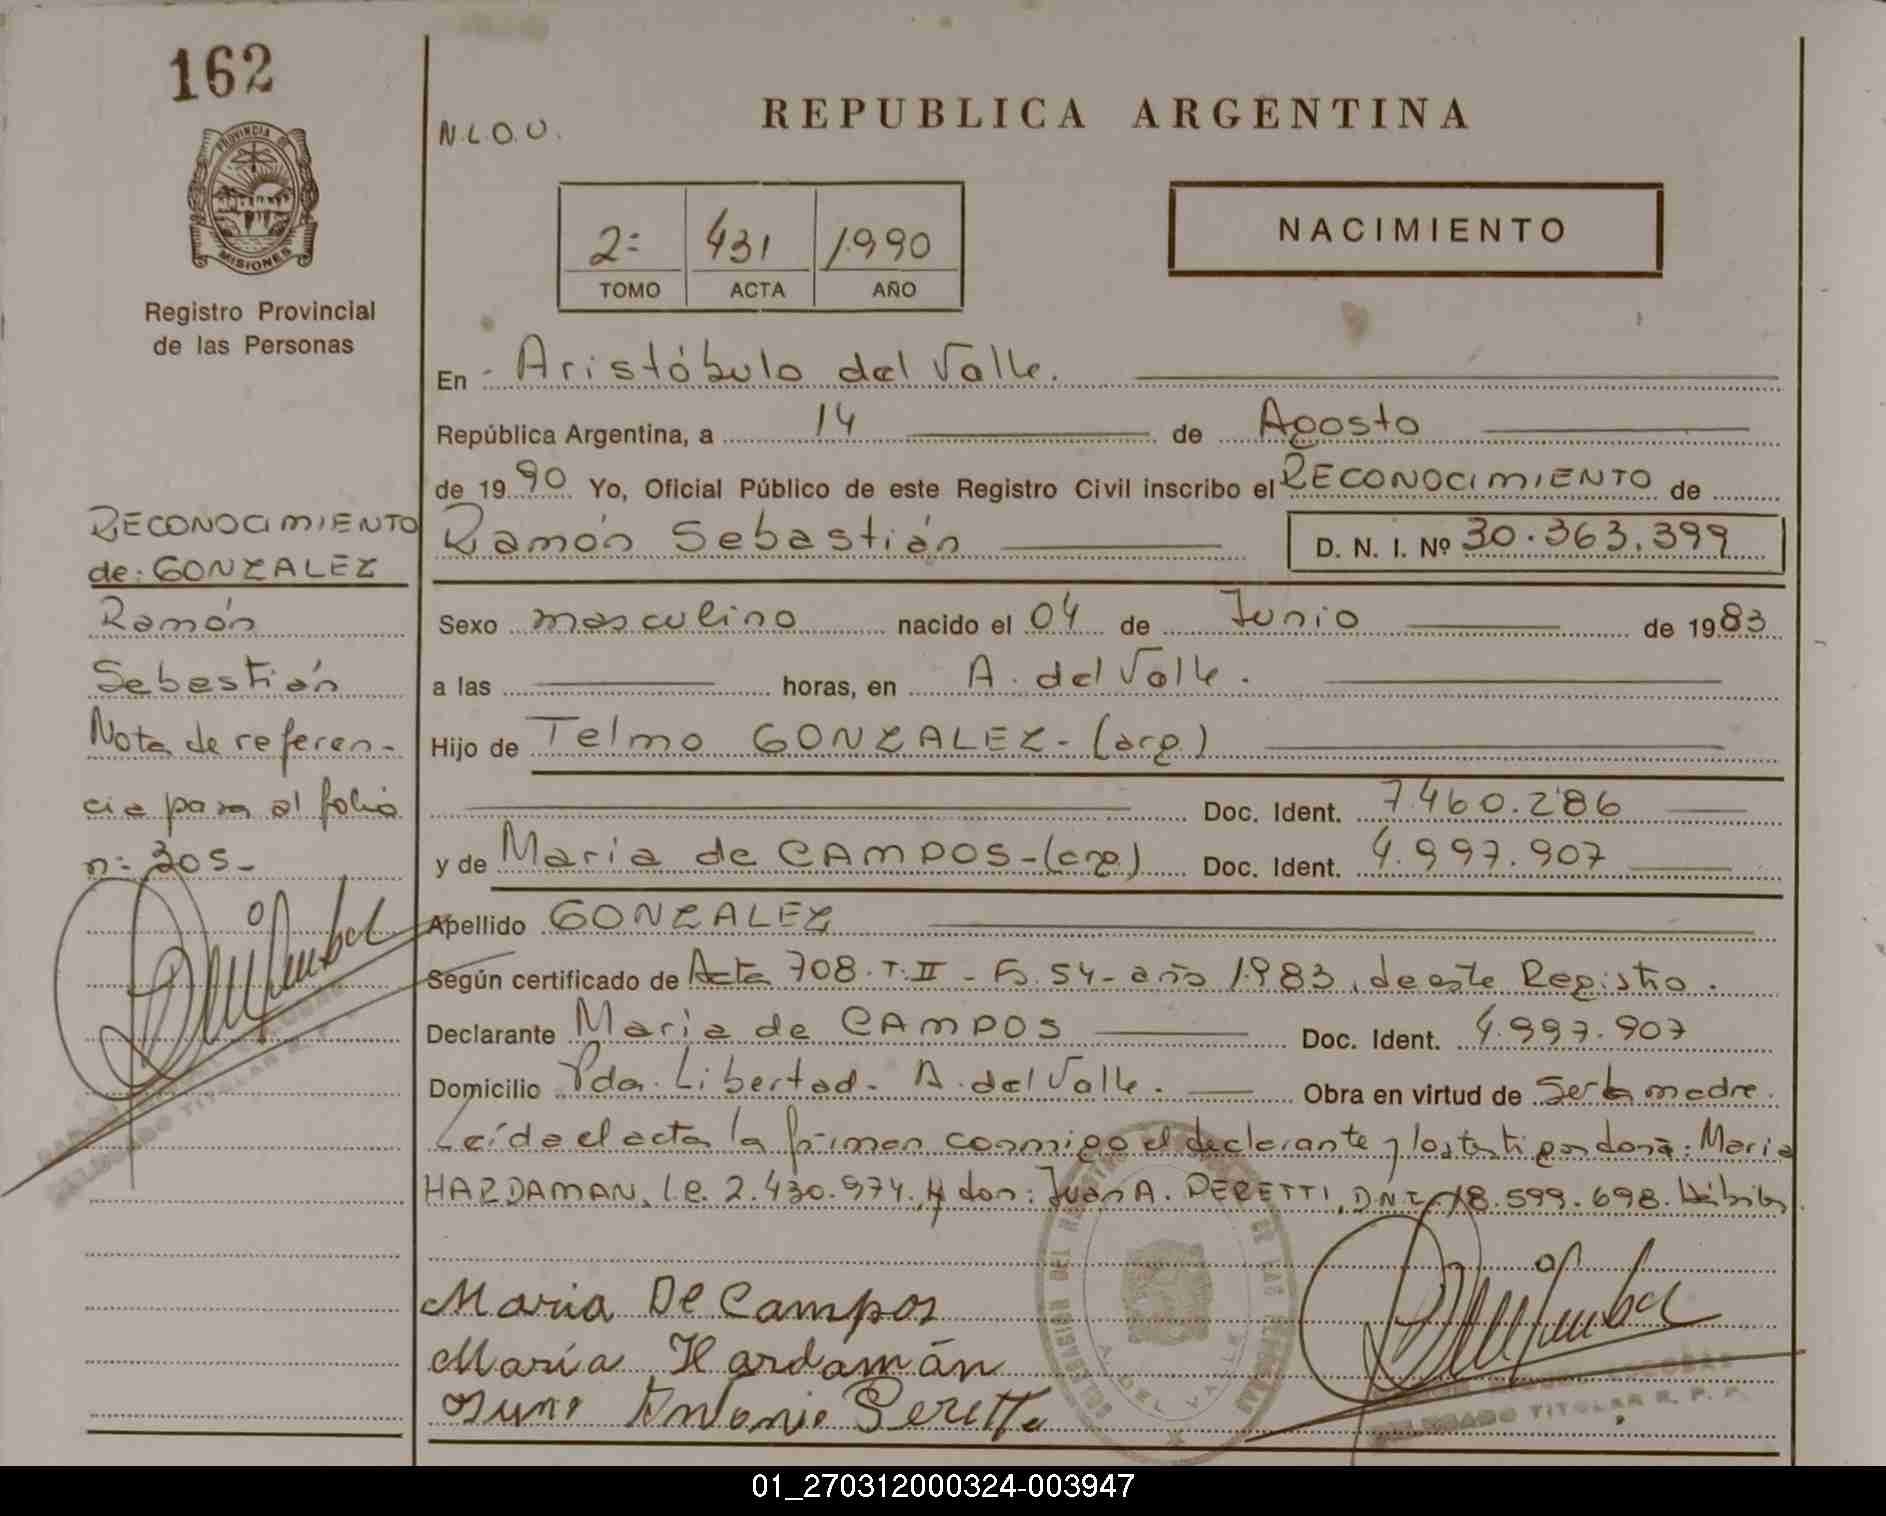 162
PROVINCIA DE
MISIONES
Registro Provincial
de las Personas
N.L.O.U.
REPUBLICA ARGENTINA
2=
431
1990
TOMO
ACTA
AÑO
NACIMIENTO
En Aristóbulo del Valle.
República Argentina, a 14 de Agosto
de 1990 Yo, Oficial Público de este Registro Civil inscribo el RECONOCIMIENTO de
Ramón Sebastián D. N. I. Nº 30.363.399
Sexo masculino nacido el 04 de Junio de 1983
a las horas, en A. del Valle.
Hijo de Telmo GONZALEZ - (arg.)
Doc. Ident. 7.460.286
y de Maria de CAMPOS - (arg.) Doc. Ident. 4.997.907
Apellido GONZALEZ
Según certificado de Acta 708. T. II - Fo. 54 - año 1983, de este Registro.
Declarante Maria de CAMPOS Doc. Ident. 4.997.907
Domicilio Pda. Libertad - A. del Valle. Obra en virtud de Ser la madre.
Leída el acta la firman conmigo el declarante y los testigos doña: Maria
HARDAMAN, L.C. 2.430.974. y don: Juan A. PERETTI, D.N.I. 18.599.698. Hábiles.
Maria De Campos
María Hardamán
Juan Antonio Peretti
RECONOCIMIENTO
de: GONZALEZ
Ramón
Sebastián
Nota de referen-
cia para al folio
n= 305-
DELEGADO TITULAR R. P. P.
A. DEL VALLE
DELEGADO TITULAR R. P. P.
01_270312000324-003947